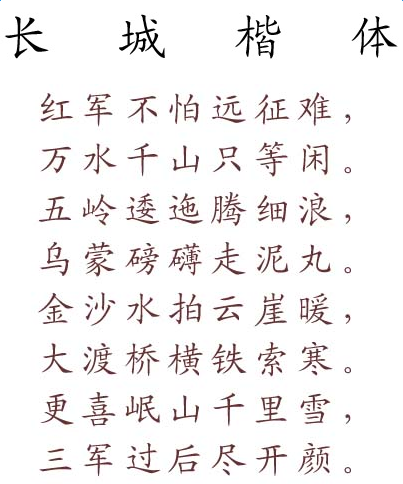 长城楷体
红军不怕远征难，
万水千山只等闲。
五岭逶迤腾细浪，
乌蒙磅礴走泥丸。
金沙水拍云崖暖，
大渡桥横铁索寒。
更喜岷山千里雪，
三军过后尽开颜。